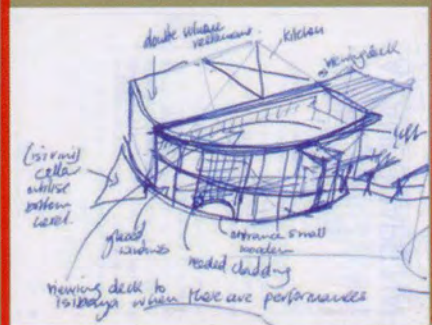 double volume
restaurant
kitchen
viewing deck
loft
(isivini)
cellar
utilise
bottom
level.
glazed
windows
entrance small
wooden
reeded cladding
viewing deck to
isibaya when there are performances